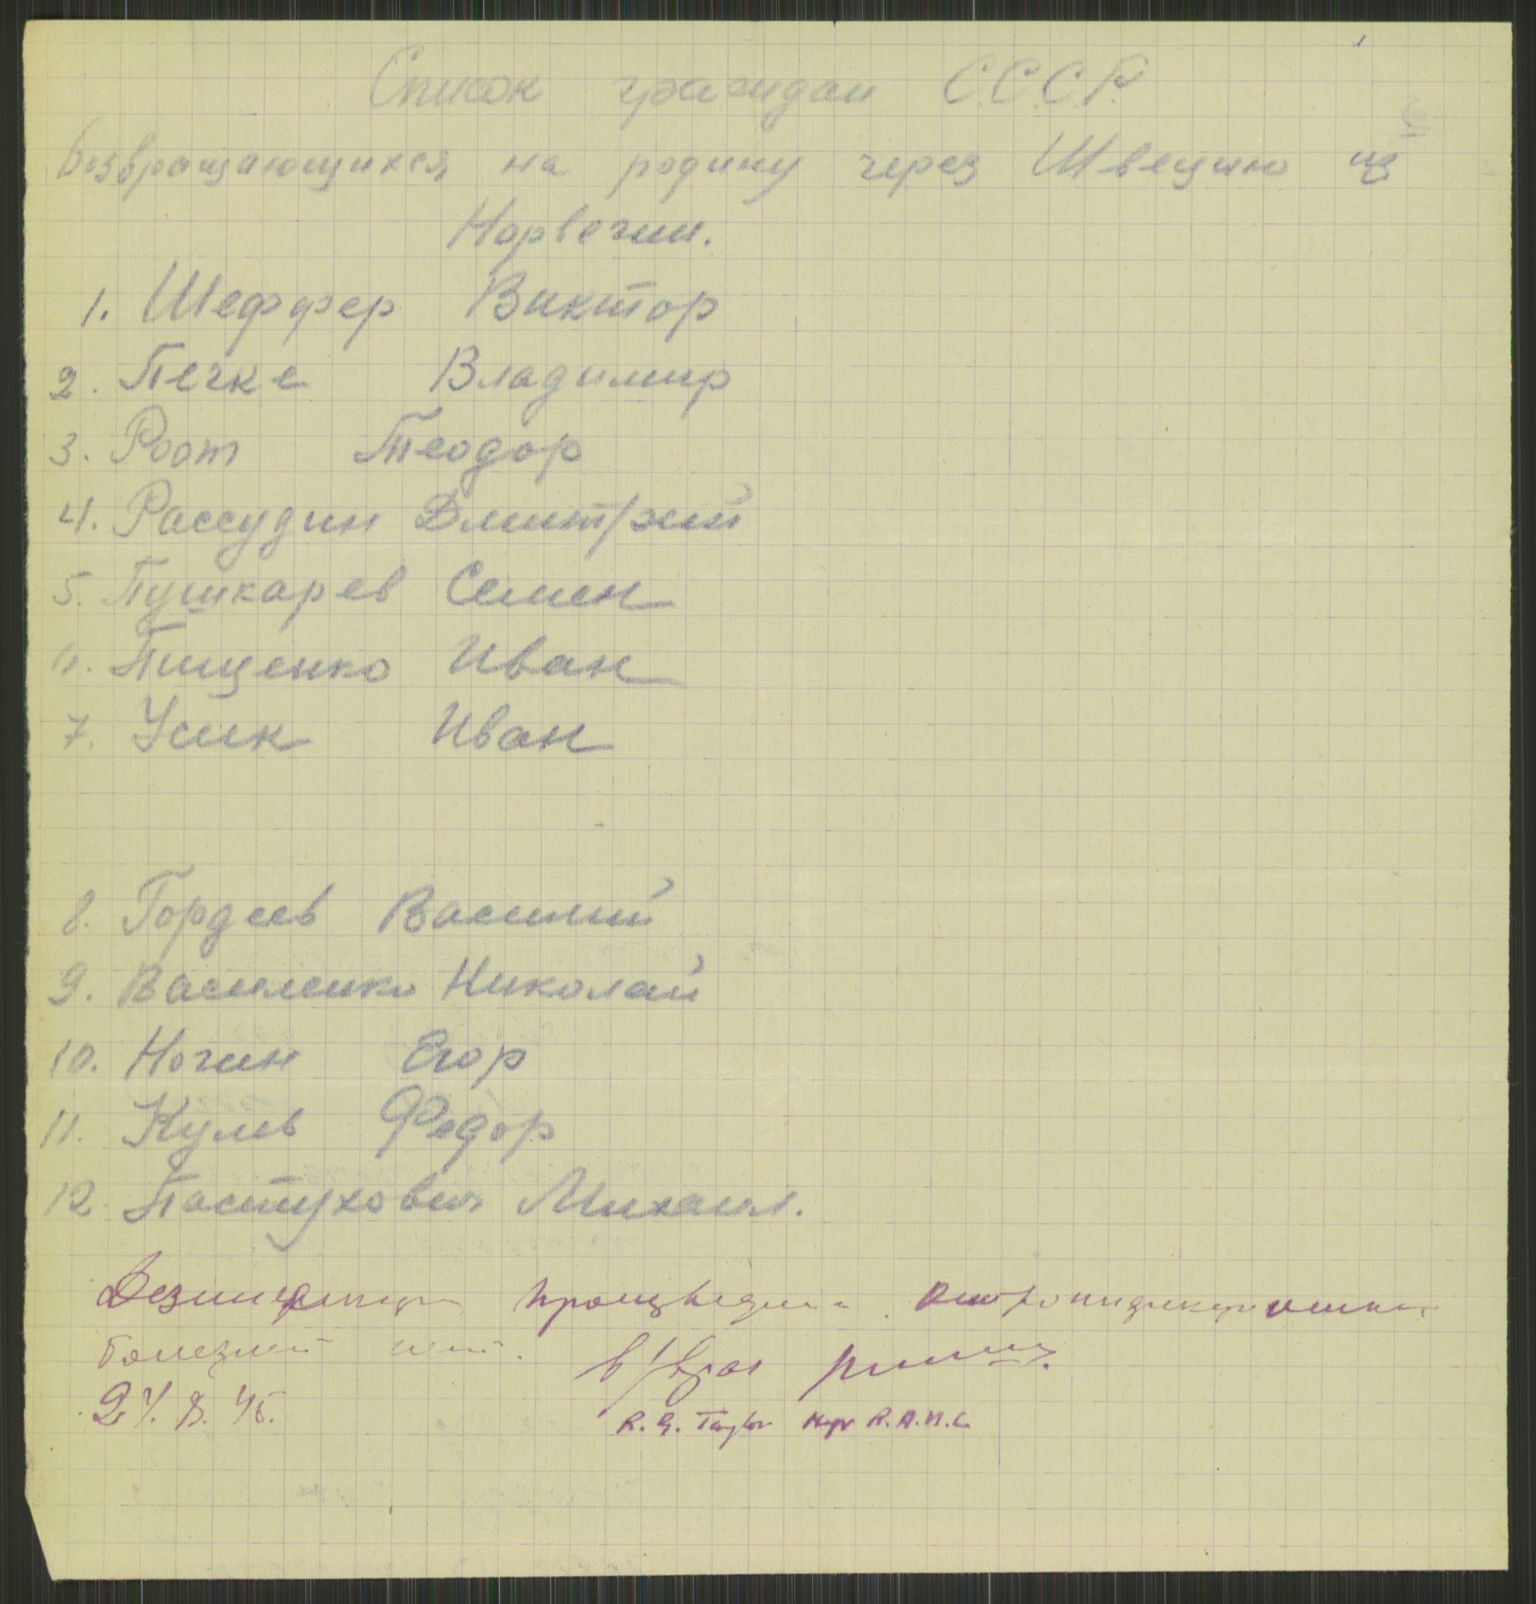 Список граждан С.С.С.Р.
Возвращающихся на родину через Швецию из
Норвегии.
1. Шеффер Виктор
2. Печке Владимир
3. Роот Теодор
4. Рассудин Дмитрий
5. Пушкарев Семен
6. Пищенко Иван
7. Усик Иван
8. Гордеев Василий
9. Василенко Николай
10. Ногин Егор
11. Кулев Федор
12. Пастухович Михаил.
Дезинфекция произведена. Остроинфекционных
болезней нет. в/врач
27. 8. 45.
R. G. Taylor Major R.A.M.C.